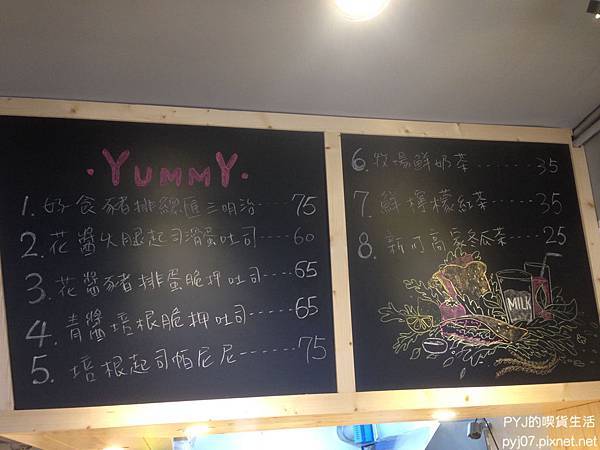 ·YUMMY·
1. 好食豬排總匯三明治 75
2. 花醬火腿起司滑蛋吐司 60
3. 花醬豬排蛋脆押吐司 65
4. 青醬培根脆押吐司 65
5. 培根起司帕尼尼 75
6. 牧場鮮奶茶 35
7. 鮮檸檬紅茶 35
8. 古高家冬瓜茶 25
MILK
PYJ的喫貨生活
pyj07.pixnet.net